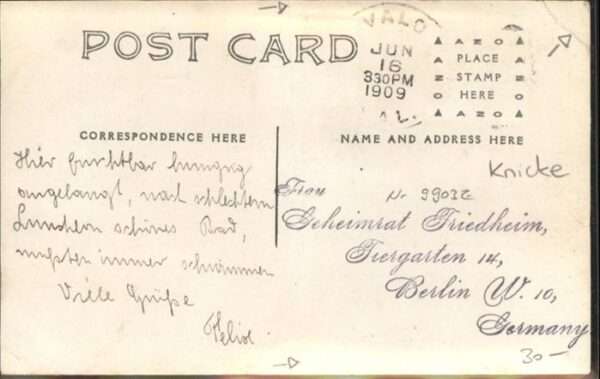 POST CARD
VALO
JUN
16
330PM
1909
AZO
PLACE
STAMP
HERE
AZO
CORRESPONDENCE HERE
NAME AND ADDRESS HERE
Knicke
Hier furchtbar hungrig
angelangt, nach schlechtem
Luncheon schönes Bad,
mußten immer schwimmen
Viele Grüße
Felix.
Frau
Nr 99032
Geheimrat Friedheim,
Tiergarten 14,
Berlin W. 10,
Germany
30-